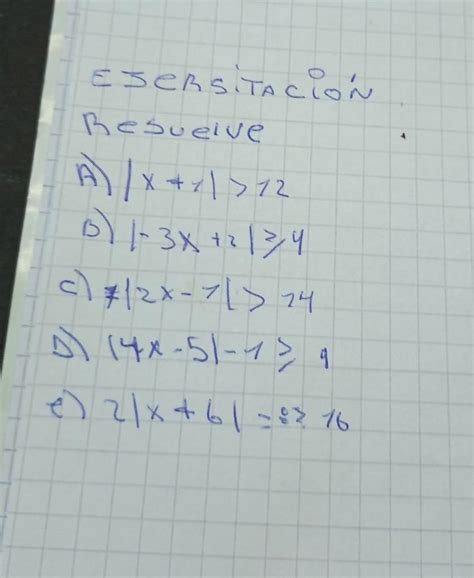 EJERSITACIÓN
Resuelve
A) |x+1|>12
B) |-3x+2|≥4
C) 7|2x-1|>14
D) |4x-5|-1≥9
e) 2|x+6| 16